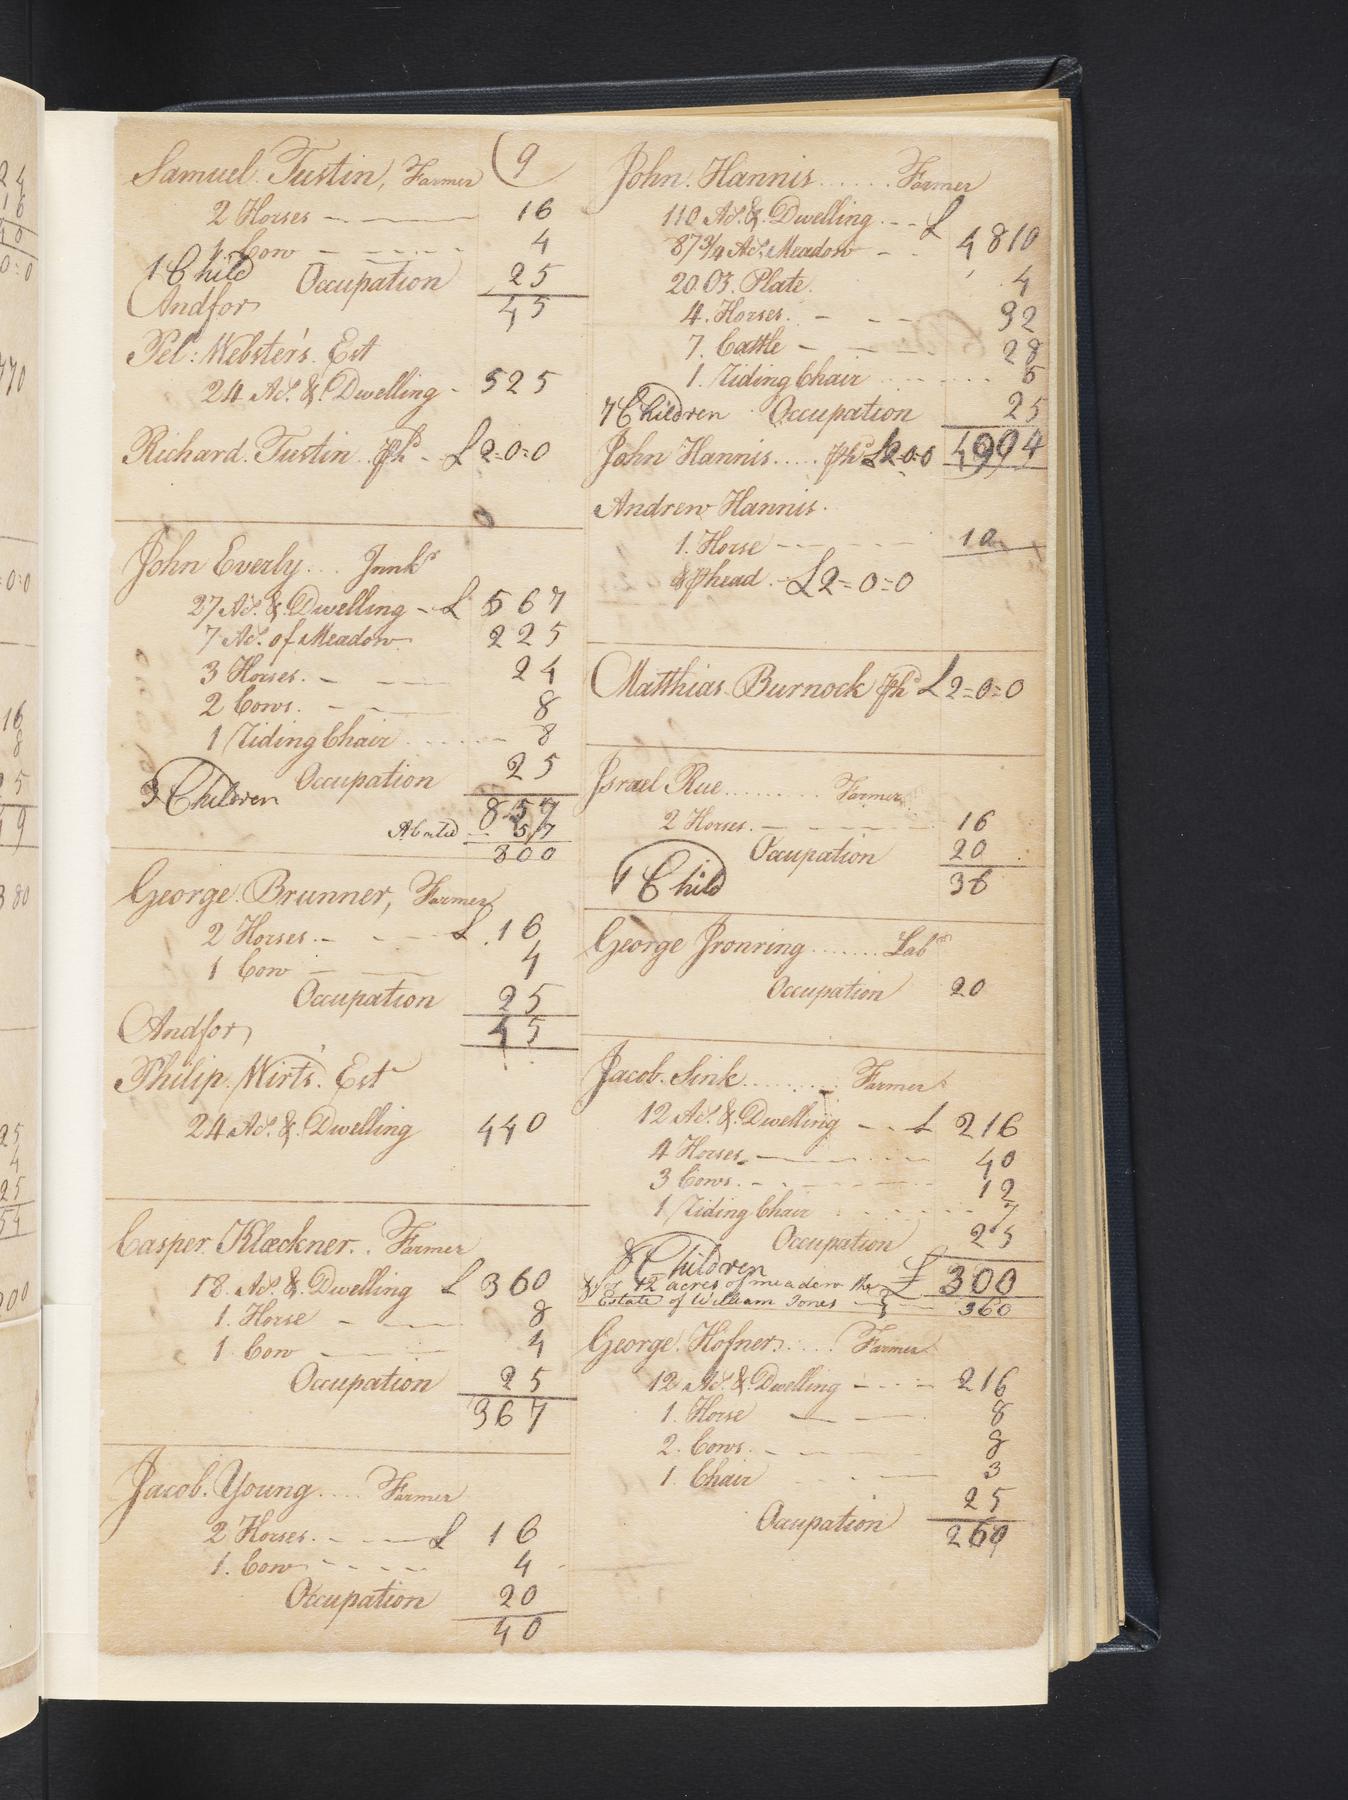 9
Samuel Tustin, Farmer
2 Horses 16
1 Cow 4
1 Child Occupation 25
And for 45
Pel: Webster's Est
24 Acs. & Dwelling 525
Richard Tustin ℔ hd £ 2=0=0
John Everly Innkr
27 Acs. & Dwelling £ 567
7 Acs. of Meadow 225
3 Horses 24
2 Cows 8
1 Riding Chair 8
Occupation 25
3 Children 857
Abated 57
800
George Brunner, Farmer
2 Horses £ 16
1 Cow 4
Occupation 25
And for 45
Philip Wirts. Est
24 Acs. & Dwelling 440
Casper Klæckner Farmer
18 Acs. & Dwelling £ 360
1 Horse 8
1 Cow 4
Occupation 25
367
Jacob Young Farmer
2 Horses £ 16
1 Cow 4
Occupation 20
40
John Hannis Farmer
110 Acs. & Dwelling £
87 3/4 Acs. Meadow 4810
20 Oz. Plate 4
4 Horses 32
7 Cattle 28
1 Riding Chair
7 Children Occupation 25
John Hannis ℔ hd £2=0=0 4994
Andrew Hannis
1 Horse 10
& ℔ head £2=0=0
Matthias Burnock ℔ hd £2=0=0
Israel Rue Farmer
2 Horses 16
Occupation 20
1 Child 36
George Ironring Labr
Occupation 20
Jacob Sink Farmer
12 Acs. & Dwelling £ 216
4 Horses 40
3 Cows 12
1 Riding Chair 7
Occupation 25
8 Children £ 300
& for 12 acres of meadow the
Estate of William Jones 360
George Hofner Farmer
12 Acs. & Dwelling 216
1 Horse 8
2 Cows 8
1 Chair 3
Occupation 25
260